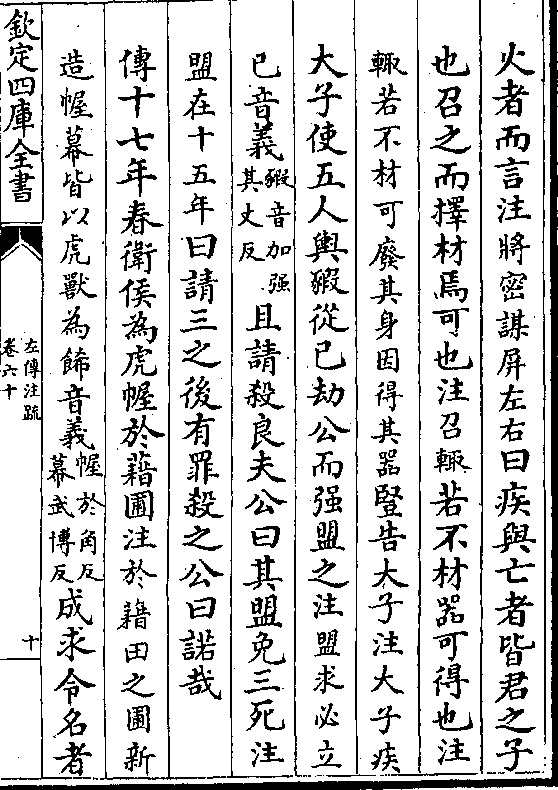 火者而言注將密謀屏左右曰疾與亡者皆君之子
也召之而擇材焉可也注召輒若不材器可得也注
輒若不材可廢其身因得其器豎告大子注大子疾
大子使五人輿豭從已劫公而强盟之注盟求必立
已音義豭音加强其丈反且請殺良夫公曰其盟免三死注
盟在十五年曰請三之後有罪殺之公曰諾哉
傳十七年春衛侯為虎幄於藉圃注於藉田之圃新
造幄幕皆以虎獸為飾音義幄於角反幕武博反成求令名者
欽定四庫全書
左傳注疏
卷六十
十